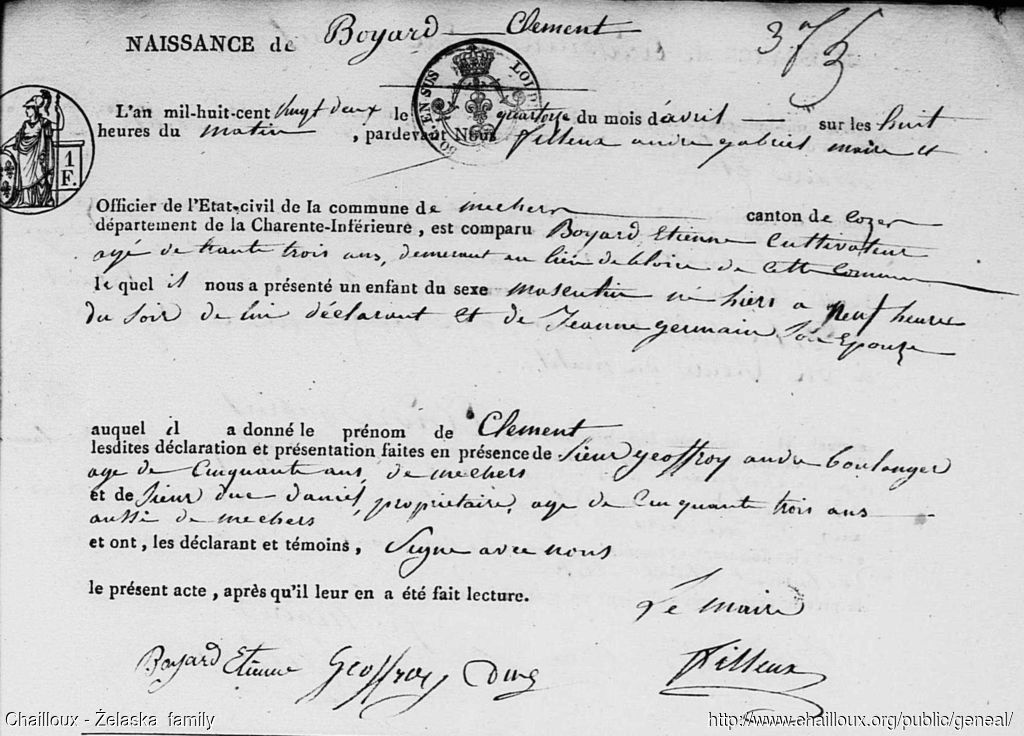 NAISSANCE de Boyard Clement
375
SUS LOUIS
L'an mil-huit-cent Vingt deux le quatorze du mois d'avril sur les huit
heures du matin, pardevant Nous Filleux andre gabriel maire et
1 F.
Officier de l'Etat-civil de la commune de mechers canton de Cozes
département de la Charente-Inférieure, est comparu Boyard Etienne Cultivateur
agé de trante trois ans, demeurant au lieu de de Cette Commune
lequel il nous a présenté un enfant du sexe masculin né hiers a neuf heures
du soir de lui déclarant Et de Jeanne germain son Epouze
auquel il a donné le prénom de Clement
lesdites déclaration et présentation faites en présence de Sieur geoffroy andre boulanger
age de Cinquante ans, de mechers
et de Sieur duc daniel, propriétaire, age de Cinquante trois ans
aussi de mechers
et ont, les déclarant et témoins, Signe avec nous
le présent acte, après qu'il leur en a été fait lecture.
Le maire
Boyard Etienne Geoffroy Filleux
Chailloux - Żelaska family
http://www.chailloux.org/public/geneal/